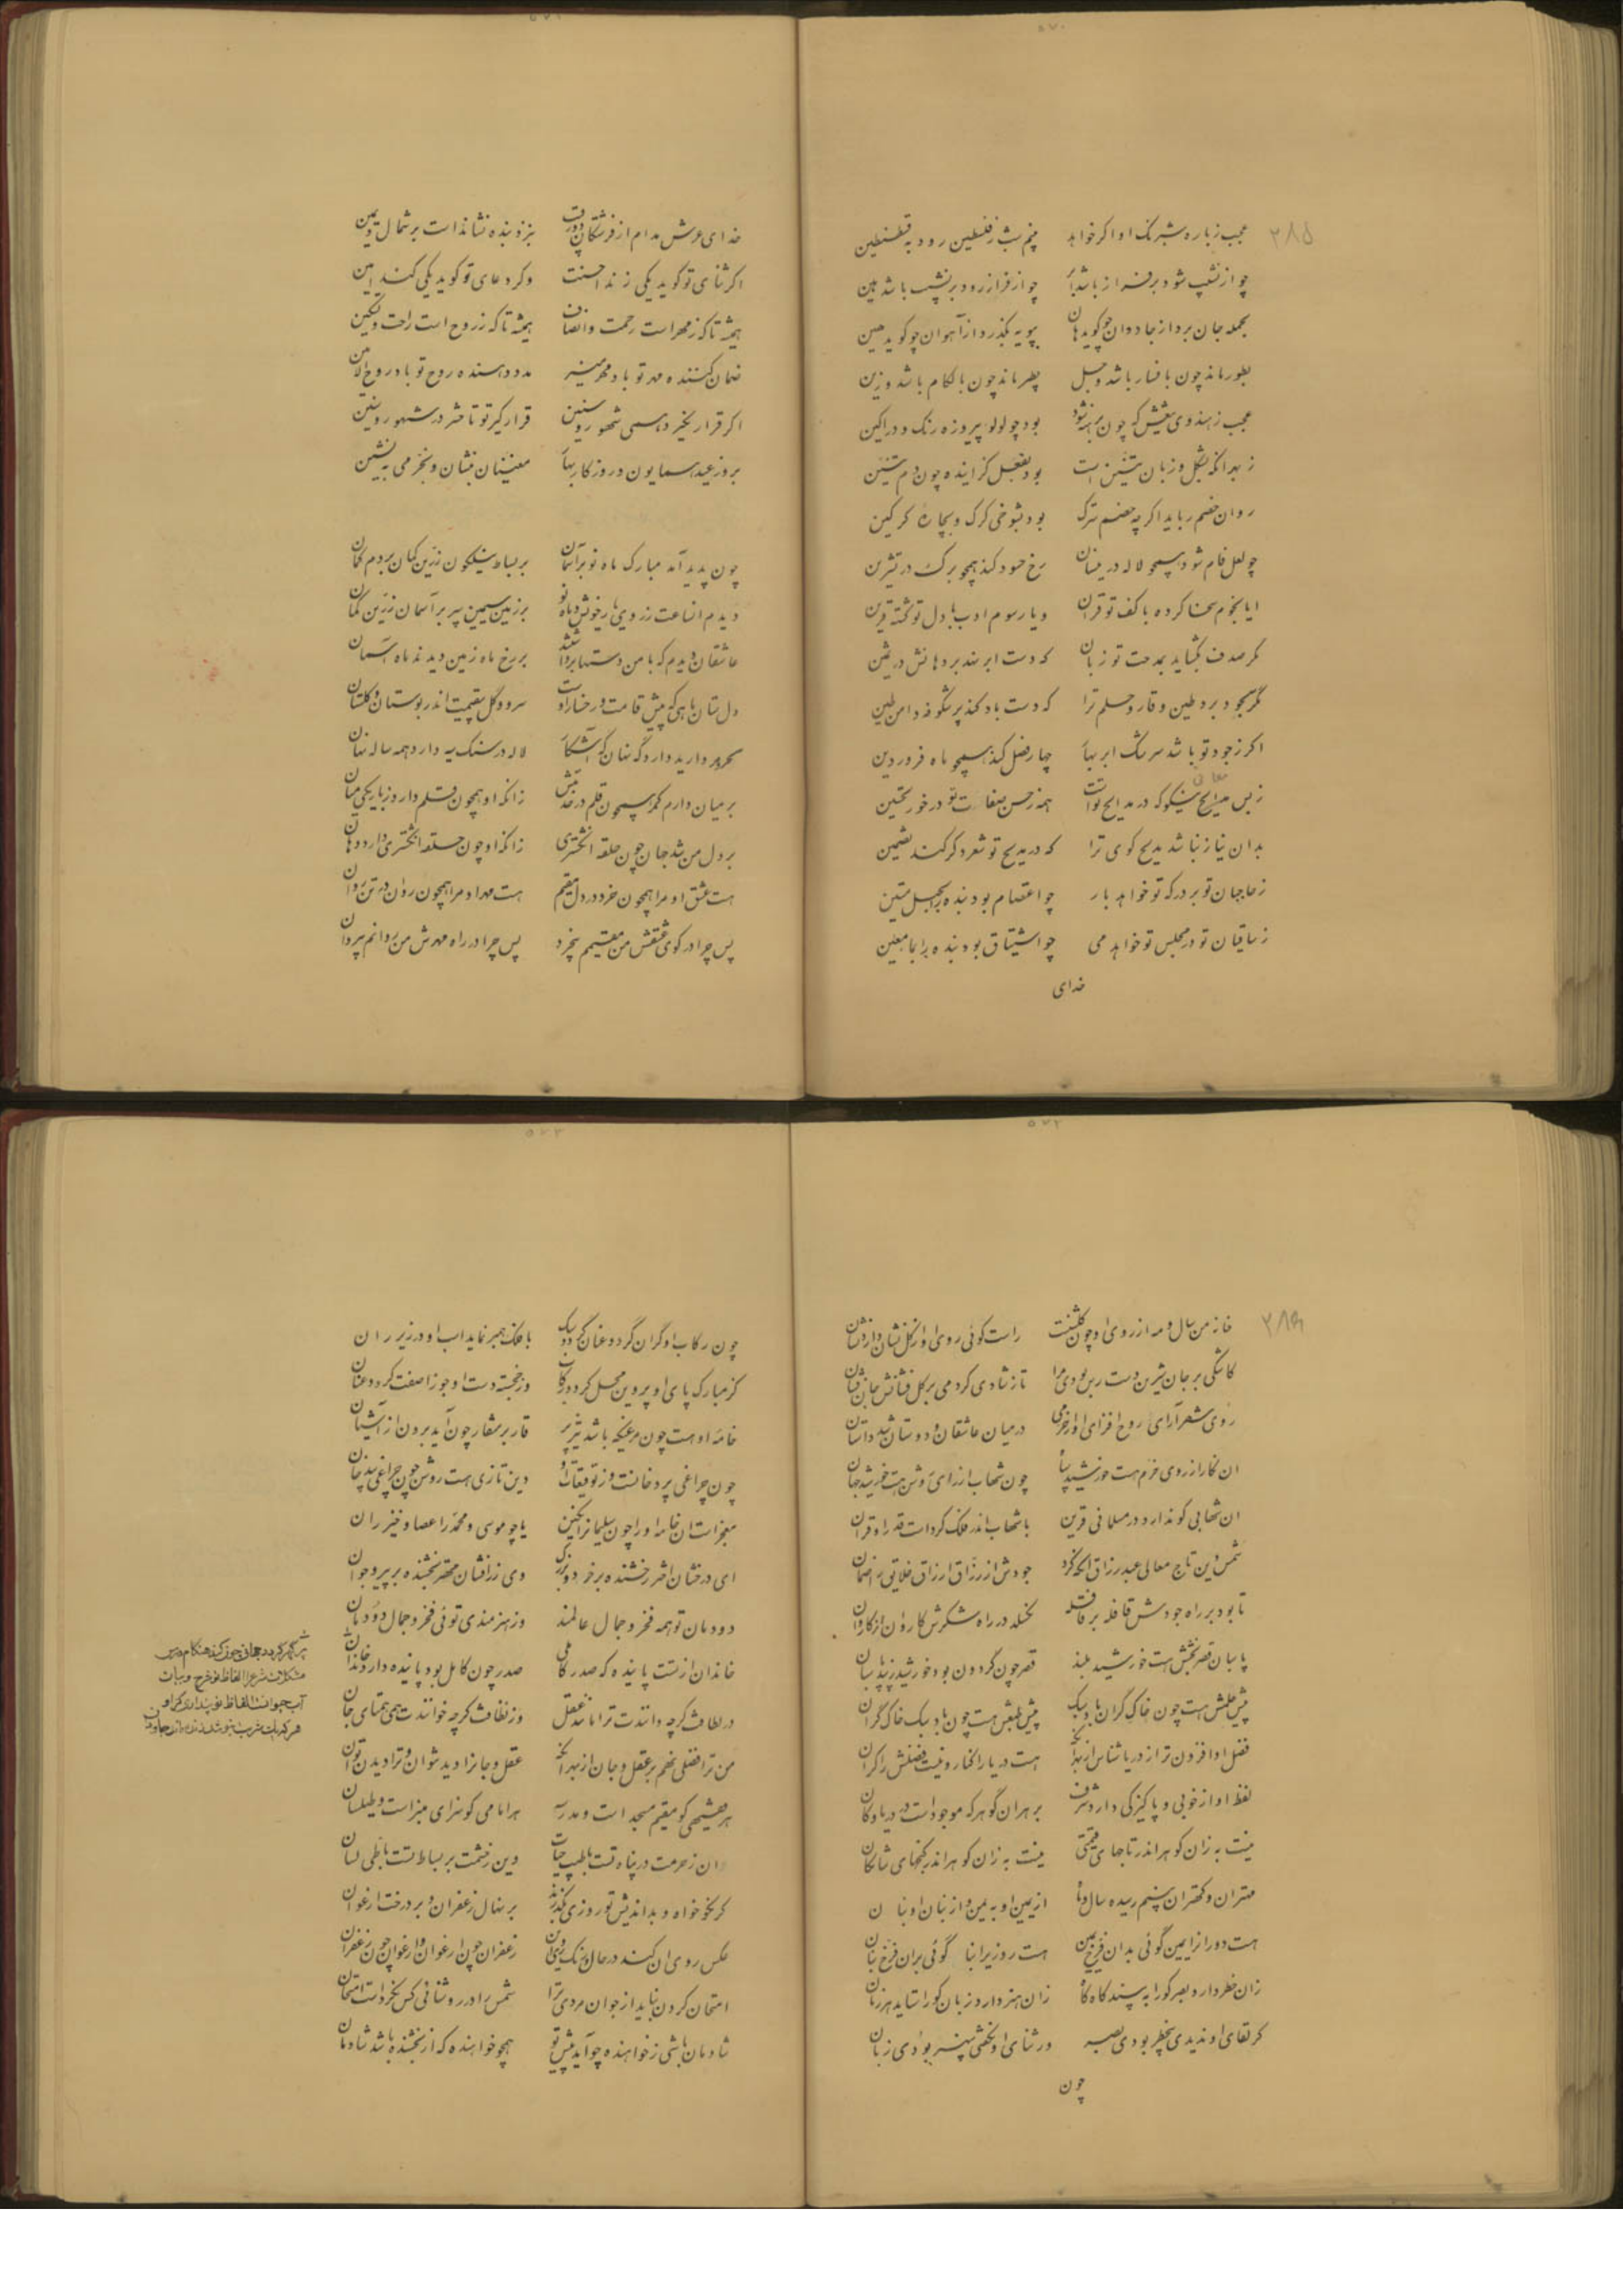 ۵۷۰
۲۸۵
عجب ز باره شبرنگ او اگر خواهد نیم شب ز فلسطین رود به قسطنطین
چو از نشیب شود بر فراز باشد چو از فراز رود بر نشیب باشد هین
بجمله جان برد از جادوان چو گوید هان بپویه بگذرد از آهوان چو گوید هین
بطور ماند چون با فسار باشد و جل بطیر ماند چون با لگام باشد و زین
عجب ز هندوی تیغش که چون برهنه شود بود چو لولو پیروزه رنگ و در آگین
ز بهر آنکه بشکل و زبان تنین است بود بفعل گزاینده چون دم تنین
روان خصم رباید اگر چه خصم بزرگ بود بشوخی گرگ و بچاره گرگین
چو لعل فام شود همچو لاله در نیسان رخ حسود کند همچو برگ در تشرین
ایا نجوم سخا کرده با کف تو قران و یا رسوم ادب با دل تو گشته قرین
مگر صدف بگشاید بمدحت تو زبان که دست ابر نهد بر دهانش در ثمین
مگر سجود برد طین وقار و حلم ترا که دست باد کند پر شکوفه دامن طین
اگر ز جود تو باشد سرشک ابر بهار چهار فصل کند همچو ماه فروردین
ز بس معانی نیکو که در مدایح تو است همه ز حسن صفات تو در خور تحسین
بدان نیاز نباشد مدیح گوی ترا که در مدیح تو شعر دگر کند تضمین
ز حاجبان تو بر درگه تو خواهد بار چو اعتصام بود بنده را بحبل متین
ز ساقیان تو در مجلس تو خواهد می چو اشتیاق بود بنده را بماء معین
خدای
خدای عرش مدام از فرشتگان دو رقیب بنزد بنده نشانده است بر شمال و یمین
اگر ثنای تو گوید یکی زند احسنت و گر دعای تو گوید یکی کند آمین
همیشه تا که ز مهر است رحمت و انصاف همیشه تا که ز روح است راحت و تسکین
ضمان کننده مهر تو باد مهر منیر مدد دهنده روح تو باد روح الامین
اگر قرار نگیرد همی شهور و سنین قرار گیر تو تا حشر در شهور و سنین
بروز عید همایون و روزگار بهار مغنیان بنشان و بخرمی بنشین
چون پدید آمد مبارک ماه نو بر آسمان بر بساط نیلگون زرین کمان بردم گمان
دیدم آن ساعت ز روی یار خویش و ماه نو بر زمین سیمین سپر بر آسمان زرین کمان
عاشقان دیدم که با من دستها برداشتند بر رخ ماه زمین دیدند ماه آسمان
دلستان ماهی که پیش قامت و رخسار اوست سرو و گل بیقیمت اندر بوستان و گلستان
گر مروارید دارد گه نهان گه آشکار لاله در سنگ سیه دارد همه ساله نهان
بر میان دارم کمر همچون قلم در خدمتش زانکه او همچون قلم دارد ز باریکی میان
بر دل من شد جهان چون حلقه انگشتری زانکه او چون حلقه انگشتری دارد دهان
هست عشق او مرا همچون خرد در دل مقیم هست مهر او مرا همچون روان در تن روان
پس چرا در کوی عشقش من مقیمم بیخرد پس چرا در راه مهرش من روانم بیروان
۵۷۲
۲۸۶
خانه من سال و مه از روی او چون گلشن است راست گوئی روی او از گل نشان دارد نشان
کاشکی بر جان شیرین دسترس بودی مرا تا ز شادی کردمی بر گل فشانش جان فشان
روی شهر آرای روح افزای او از خرمی در میان عاشقان و دوستان شد داستان
آن نگار از روی خرم هست خورشید سپاه چون شهاب از رای روشن هست خورشید جهان
آن شهابی کو ندارد در مسلمانی قرین با شهاب اندر فلک کرده است قدر او قران
شمس دین تاج معالی عبد رزاق آنکه کرد جودش از رزاق ارزاق خلایق را ضمان
تا بود بر راه جودش قافله بر قافله نگسلد در راه شکرش کاروان از کاروان
پاسبان قصر بختش هست خورشید بلند قصر چون گردون بود خورشید زیبد پاسبان
پیش حلمش هست چون خاک گران باد سبک پیش طبعش هست چون باد سبک خاک گران
فضل او افزون تر از دریا شناس از بهر آنک هست دریا را کنار و نیست فضلش را کران
لفظ او از خوبی و پاکیزگی دارد شرف بر هر آن گوهر که موجود است در دریا و کان
نیست به زان گوهر اندر تاجهای قیمتی نیست به زان گوهر اندر گنجهای شایگان
مهتران و کهتران بینم رسیده سال و ماه از یمین او به یمن و از بنان او بنان
هست دور از ایمین گوئی بدان فرخ یمین هست روزی را بنا گوئی بران فرخ بنان
زان خطر دارد بصر کورا به بیند گاه گاه زان هنر دارد زبان کورا ستاید هر زمان
گر لقای او ندیدی بیخطر بودی بصر ور ثنای او نگفتی بی هنر بودی زبان
چون
چون رکاب او گران گردد عنان گردد سبک با فلک همبر نماید اسب او در زیر ران
کز مبارک پای او پروین محل گردد رکاب وز خجسته دست او جوزا صفت گردد عنان
خامه او هست چون مرغیکه باشد تیز پر قار بر منقار چون آید برون از آشیان
چون چراغی پر دخانست و ز توقیعات او دین تازی هست روشن چون چراغی بی دخان
معجز است آن خامه او را چون سلیمان را نگین یا چو موسی و محمد را عصا و خیزران
ای درفشان اختر رخشنده بر خرد و بزرگ وی زر افشان مهتر بخشنده بر پیر و جوان
دودمان تو همه فخر و جمال عالمند وز هنرمندی توئی فخر و جمال دودمان
خاندان از تست پاینده که صدر کاملی صدر چون کامل بود پاینده دارد خاندان
در لطافت گرچه دانندت ترا مانند عقل وز نظافت گرچه خوانندت همی همتای جان
من ترا فضلی نهم بر عقل و جان از بهر آنک عقل و جانرا دید نتوان و ترا دیدن توان
هر فقیهی کو مقیم مسجد است و مدرسه هر امامی کو سزای منبر است و طیلسان
آن ز حرمت در پناه تست با طیب حیات وین ز حشمت بر بساط تست با طی لسان
گر نکوخواه و بداندیش تو روزی بگذرند بر نهال زعفران و بر درخت ارغوان
عکس روی آن کند در حال و رنگ روی این زعفران چون ارغوان و ارغوان چون زعفران
امتحان کردن نباید از جوانمردی ترا شمس را در روشنائی کس نکرده است امتحان
شادمان باشی ز خواهنده چو آید پیش تو همچو خواهنده که از بخشنده باشد شادمان
پر گهر گردد جهانی چون کند هنگام درس
مشکلات شرع را الفاظ تو شرح و بیان
آب حیوانست الفاظ تو پنداری کز او
هر که یک شربت بنوشد زنده ماند جاودان